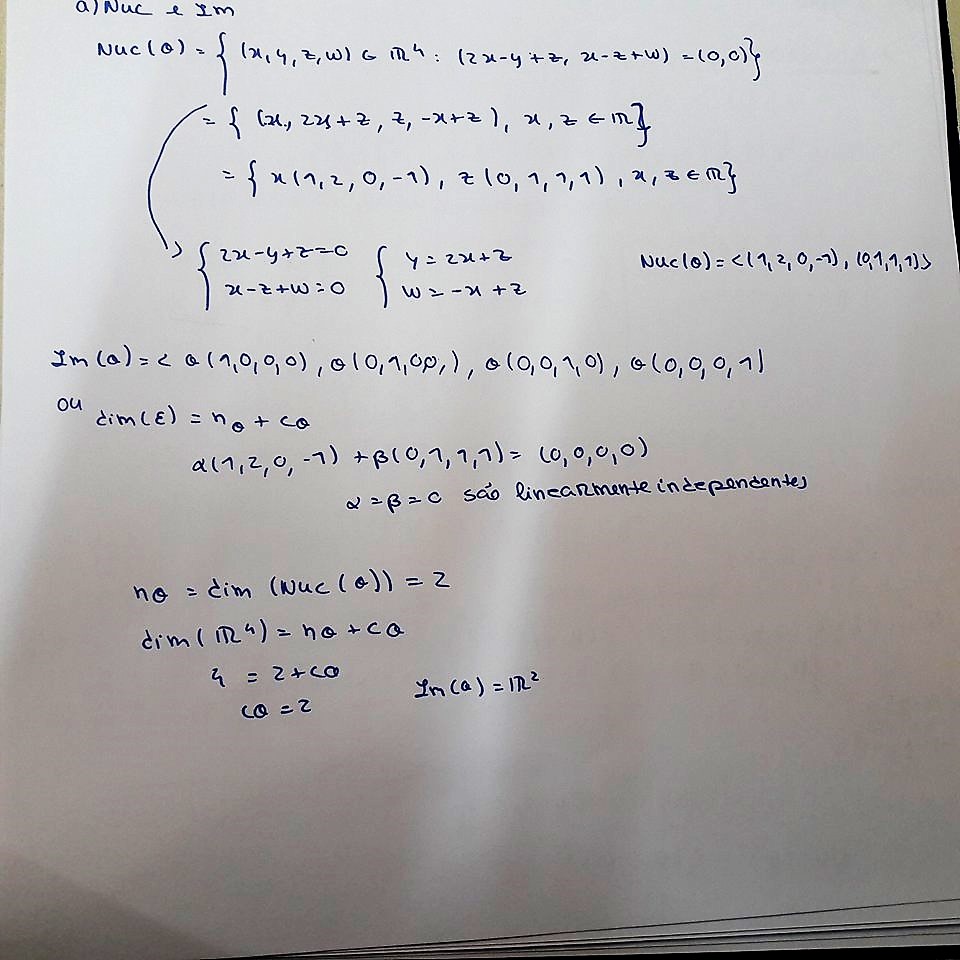 a) Nuc e Im
Nuc(θ) = { (x, y, z, w) ∈ ℝ⁴ : (2x-y+z, x-z+w) = (0,0)}
= { (x, 2x+z, z, -x+z), x, z ∈ ℝ}
= { x(1, 2, 0, -1), z(0, 1, 1, 1), x, z ∈ ℝ}
{ 2x-y+z=0 { y = 2x+z Nuc(θ) = <(1, 2, 0, -1), (0,1,1,1)>
x-z+w=0 w = -x+z
Im(θ) = < θ(1,0,0,0), θ(0,1,0,0,), θ(0,0,1,0), θ(0,0,0,1)
ou dim(E) = nθ + cθ
α(1,2,0,-1) + β(0,1,1,1) = (0,0,0,0)
α = β = 0 são linearmente independentes
nθ = dim (Nuc(θ)) = 2
dim(ℝ⁴) = nθ + cθ
4 = 2+cθ Im(θ) = ℝ²
cθ = 2